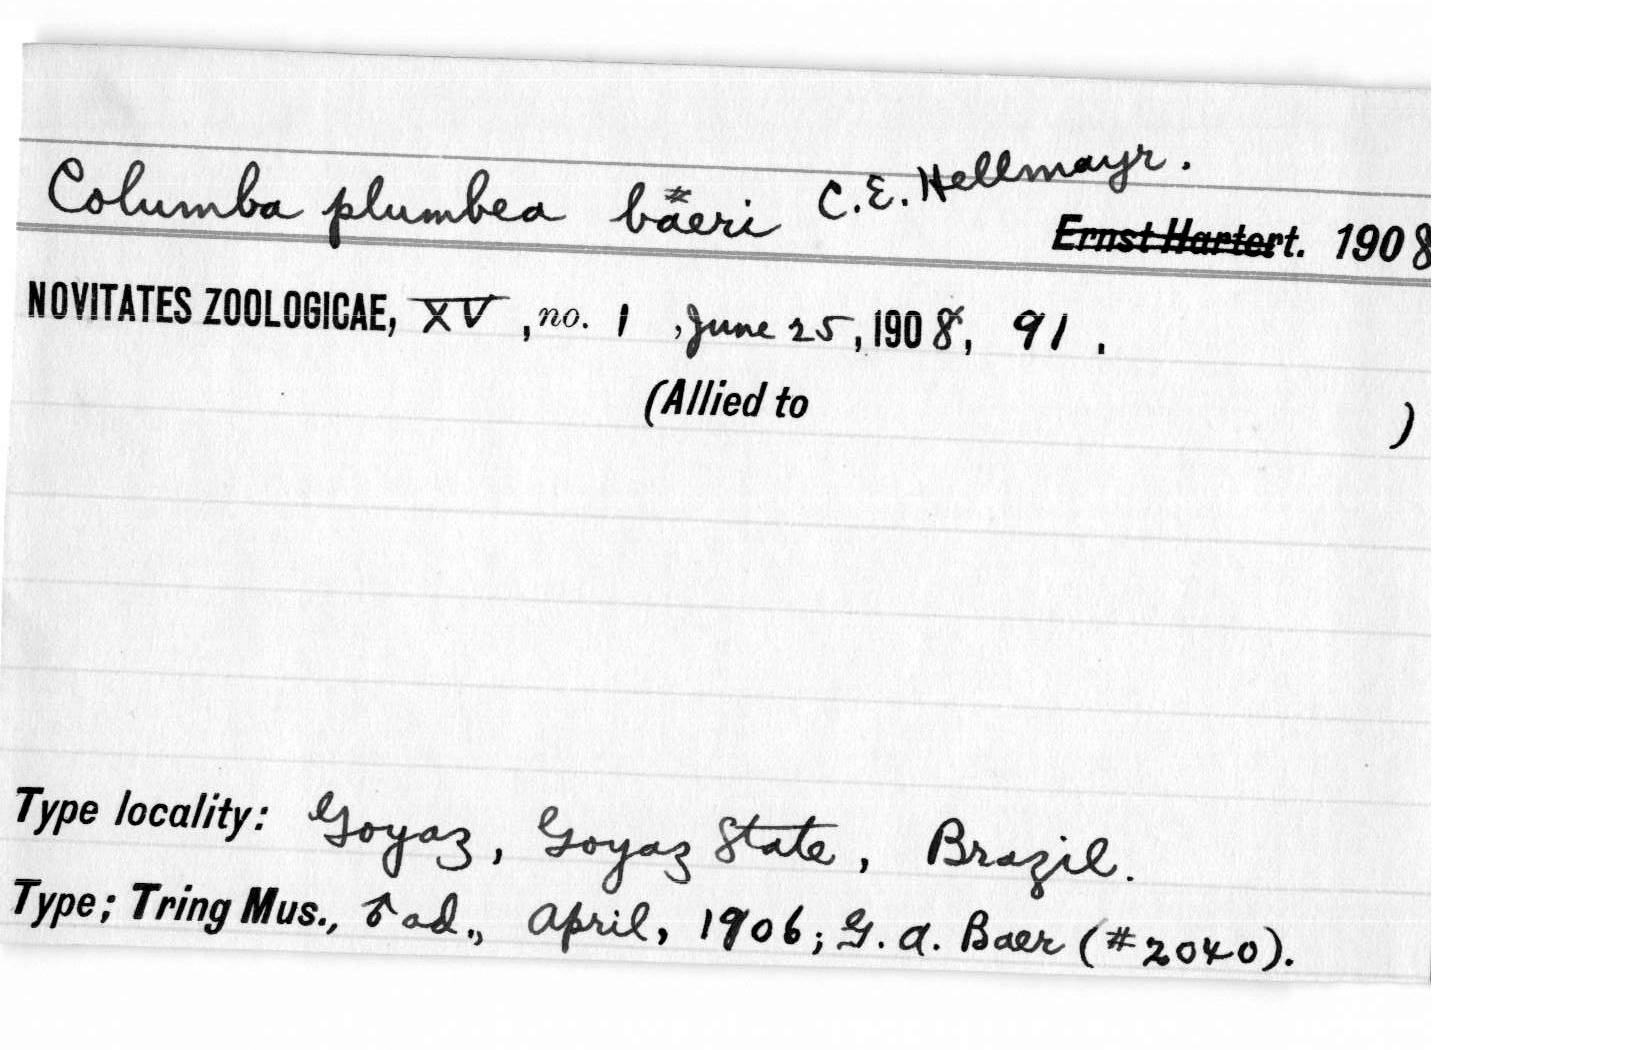 Columba plumbea baeri # C.E. Hellmayr.
Ernst Hartert. 1908
NOVITATES ZOOLOGICAE, XV, no. 1, June 25, 1908, 91.
(Allied to )
Type locality: Goyaz, Goyaz State, Brazil.
Type; Tring Mus., ♂ ad., April, 1906; G. A. Baer (#2040).